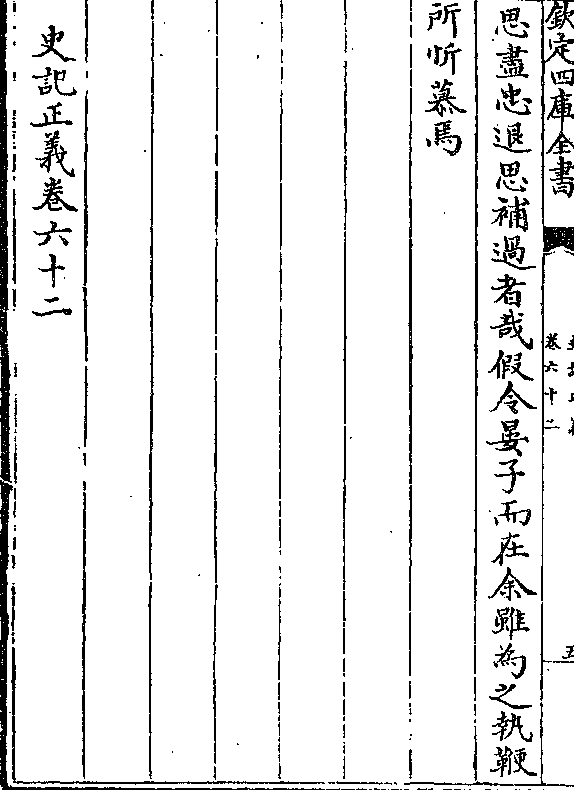 欽定四庫全書
卷六十二
五
思盡忠退思補過者哉假令晏子而在余雖為之執鞭
所忻慕焉
史記正義卷六十二